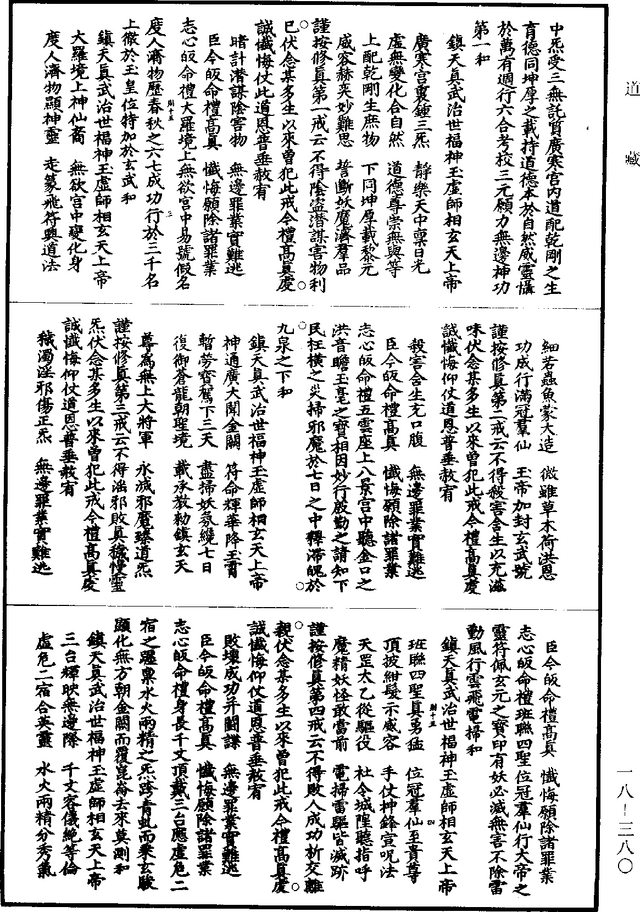 道藏
中炁受三無託質廣寒宮內道配乾剛之生
育德同坤厚之載持道德本於自然威靈懾
於萬有週行六合考校三元願力無邊神功
第一和
鎮天真武治世福神玉虛師相玄天上帝
廣寒宮裏鍾三炁　靜樂天中稟日光
虛無變化合自然　道德尊崇無與等
上配乾剛生庶物　下同坤厚載黎元
威容赫奕妙難思　誓斷妖魔濟羣品
謹按修真第一戒云不得陰盜潛謀害物利
己伏念某多生以來曾犯此戒今禮高真虔
誠懺悔仗此道恩普垂赦宥
暗計潛謀陰害物　無邊罪業實難逃
臣今皈命禮高真　懺悔願除諸罪業
志心皈命禮大羅境上無欲宮中易號假名
度人濟物歷春秋之六七成功行於三千名
上徹於玉皇位特加於玄武和
鎮天真武治世福神玉虛師相玄天上帝
大羅境上神仙裔　無欲宮中變化身
度人濟物顯神靈　走篆飛符興道法
細若蟲魚蒙大造　微雖草木荷洪恩
功成行滿冠羣仙　玉帝加封玄武號
謹按修真第二戒云不得殺害含生以充滋
味伏念某多生以來曾犯此戒今禮高真虔
誠懺悔仰仗道恩普垂赦宥
殺害含生充口腹　無邊罪業實難逃
臣今皈命禮高真　懺悔願除諸罪業
志心皈命禮五雲座上八景宮中聽金口之
洪音瞻玉毫之寶相因妙行慇懃之請知下
民枉橫之災掃邪魔於七日之中釋滯魄於
九泉之下和
鎮天真武治世福神玉虛師相玄天上帝
神通廣大聞金闕　符命輝華降玉霄
暫勞寶駕下三天　盡掃妖氛纔七日
復御蒼龍朝聖境　載承教勑鎮玄天
尊為無上大將軍　永滅邪魔臻道炁
謹按修真第三戒云不得淫邪敗真穢慢靈
炁伏念某多生以來曾犯此戒今禮高真虔
誠懺悔仰仗道恩普垂赦宥
穢濁淫邪傷正炁　無邊罪業實難逃
臣今皈命禮高真　懺悔願除諸罪業
志心皈命禮班聯四聖位冠羣仙行大帝之
靈符佩玄元之寶印有妖必滅無害不除雷
動風行雲飛電掃和
鎮天真武治世福神玉虛師相玄天上帝
班聯四聖真勇猛　位冠羣仙至貴尊
頂披紺髮示威容　手仗神鋒宣呪法
天罡太乙從驅役　社令城隍聽指呼
魔精妖怪敢當前　電掃雷驅皆滅跡
謹按修真第四戒云不得敗人成功析交離
親伏念某多生以來曾犯此戒今禮高真虔
誠懺悔仰仗道恩普垂赦宥
敗壞成功并鬪諜　無邊罪業實難逃
臣今皈命禮高真　懺悔願除諸罪業
志心皈命禮身長千丈頂戴三台應虛危二
宿之躔稟水火兩精之炁跨青虬而乘玄駿
顯化無方朝金闕而覆崑崙去來莫測和
鎮天真武治世福神玉虛師相玄天上帝
三台輝映無邊際　千丈容儀絕等倫
虛危二宿合英靈　水火兩精分秀氣
一八－三八〇